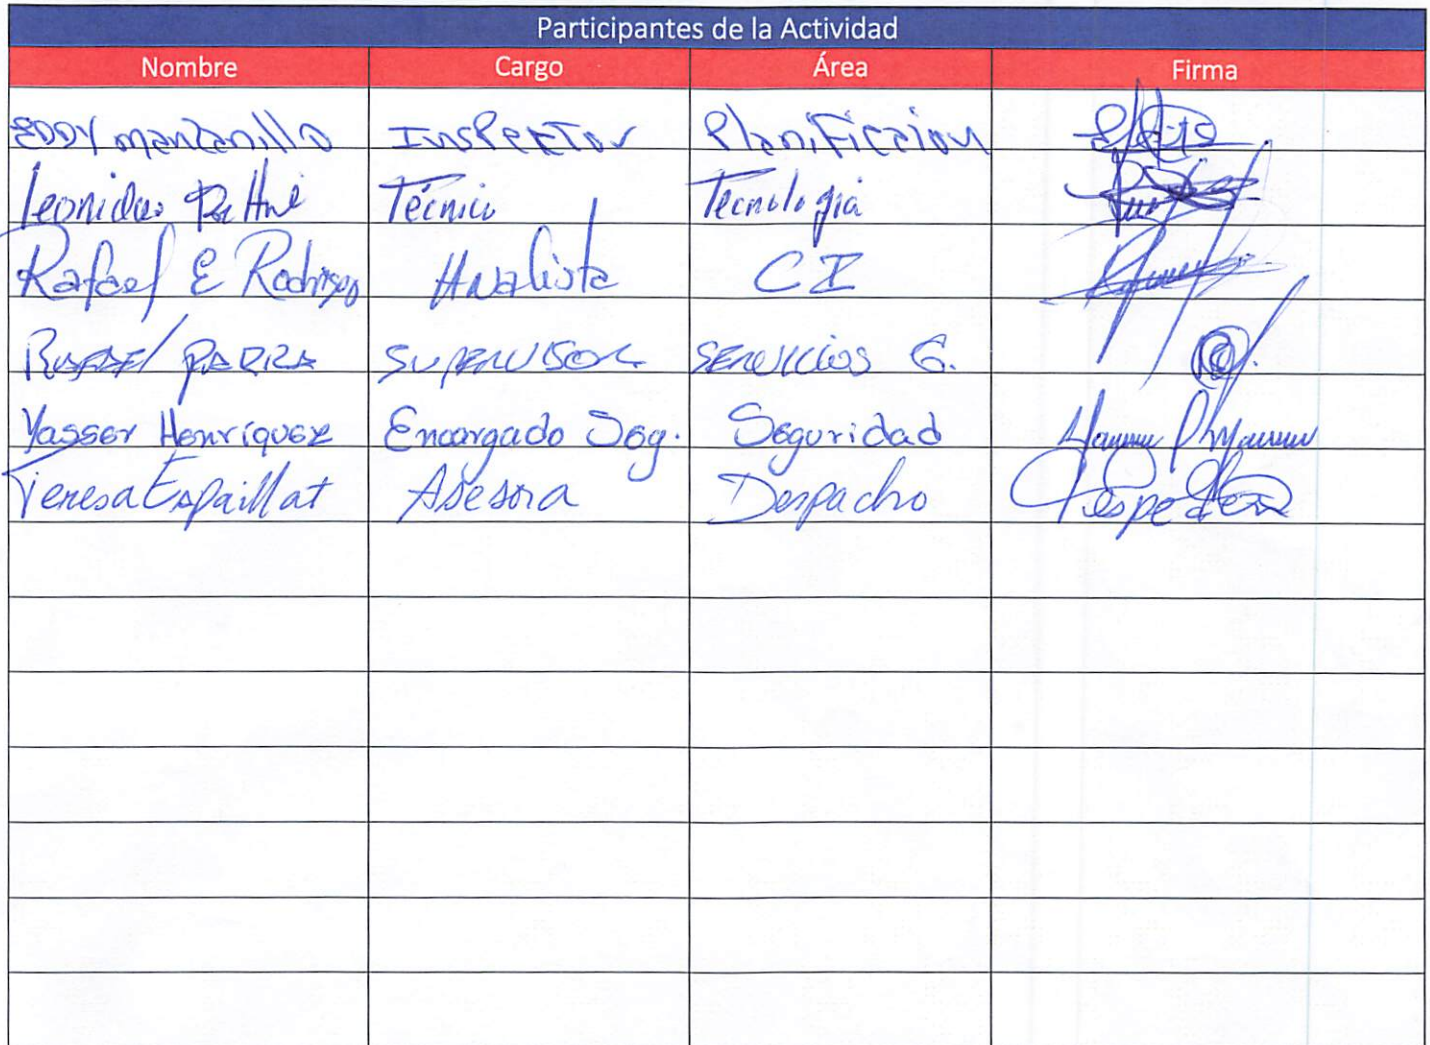 Participantes de la Actividad
Nombre Cargo Área Firma
EDDY manzanillo Inspector Planificcion
Leonidas Técnico Tecnologia
Rafael E Rodriguez Analista CI
Rafael PARRA SUPERVISOR SERVICIOS G.
Yasser Henríquez Encargado Seg. Seguridad
Teresa Espaillat Asesora Despacho